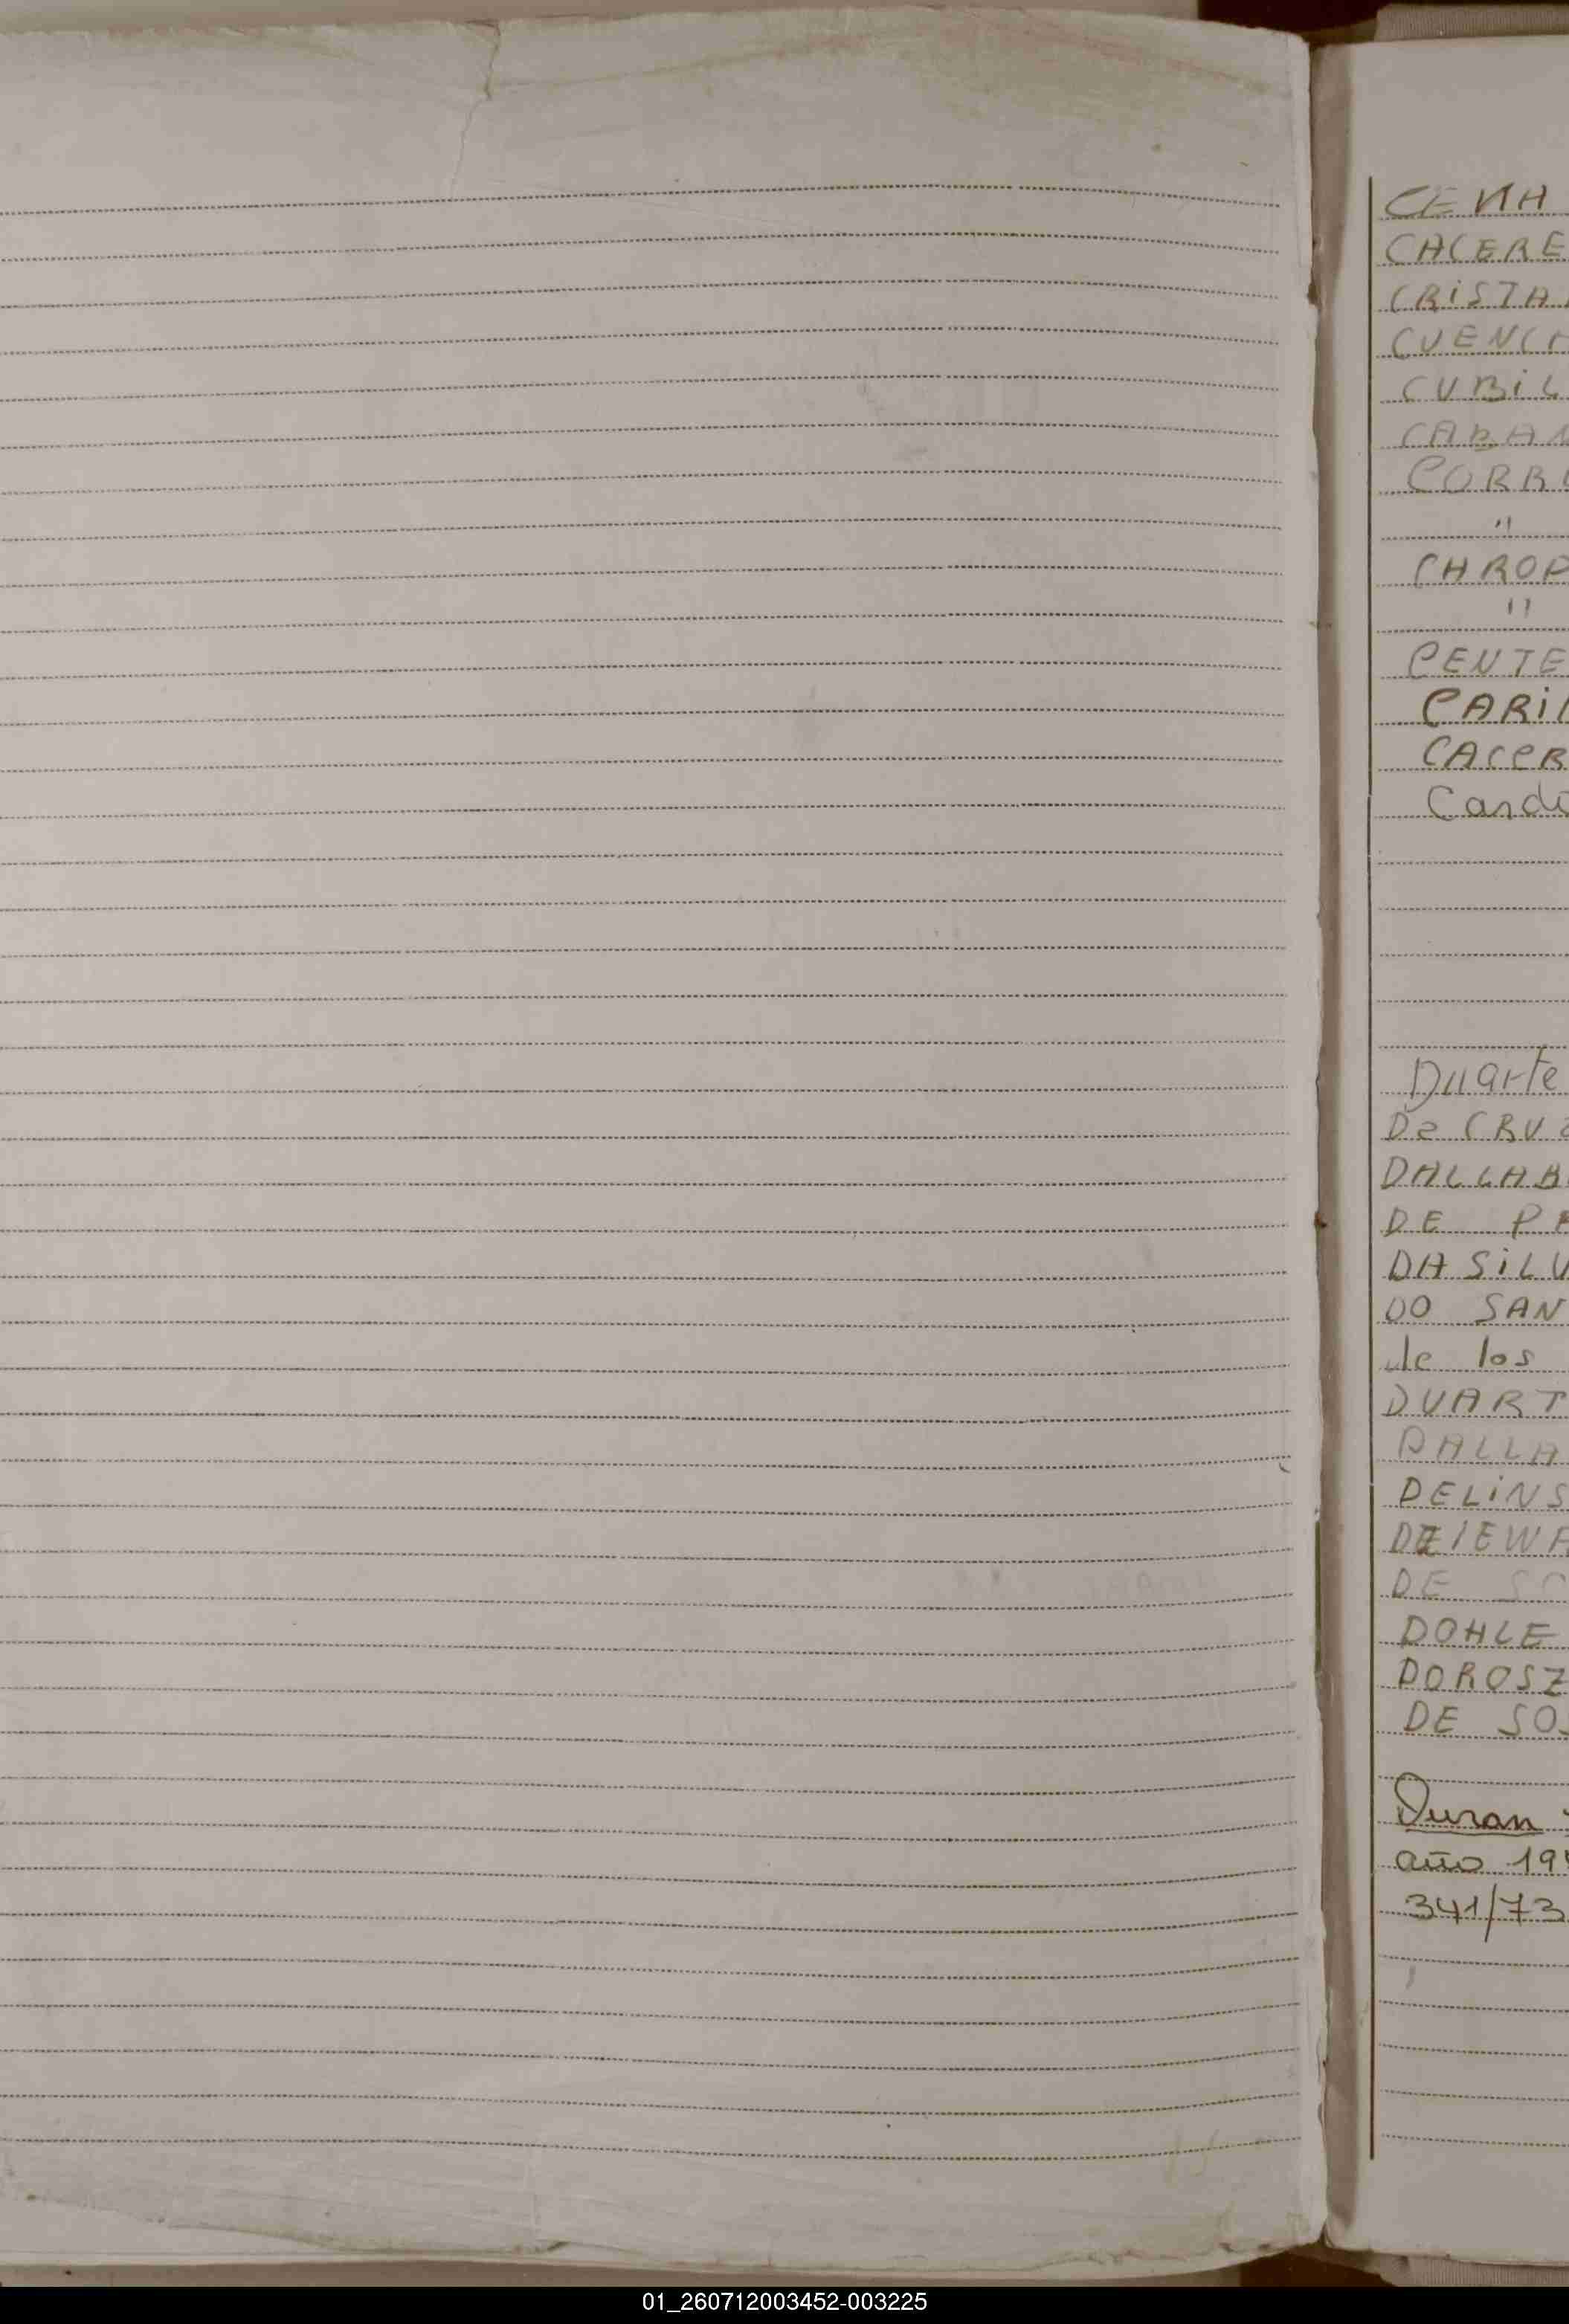 CENA
CACERE
CRISTA
CUENCA
CUBIL
CABAN
CORRU
"
CHROP
"
CENTE
CARIN
CACER
Cardo
Duarte
De CRUZ
DALLAB
DE PR
DA SILV
DO SAN
de los
DUART
DALLA
DELINS
DE SO
DOHLE
DOROSZ
DE SOS
Duran
año 194
341/73
01_260712003452-003225